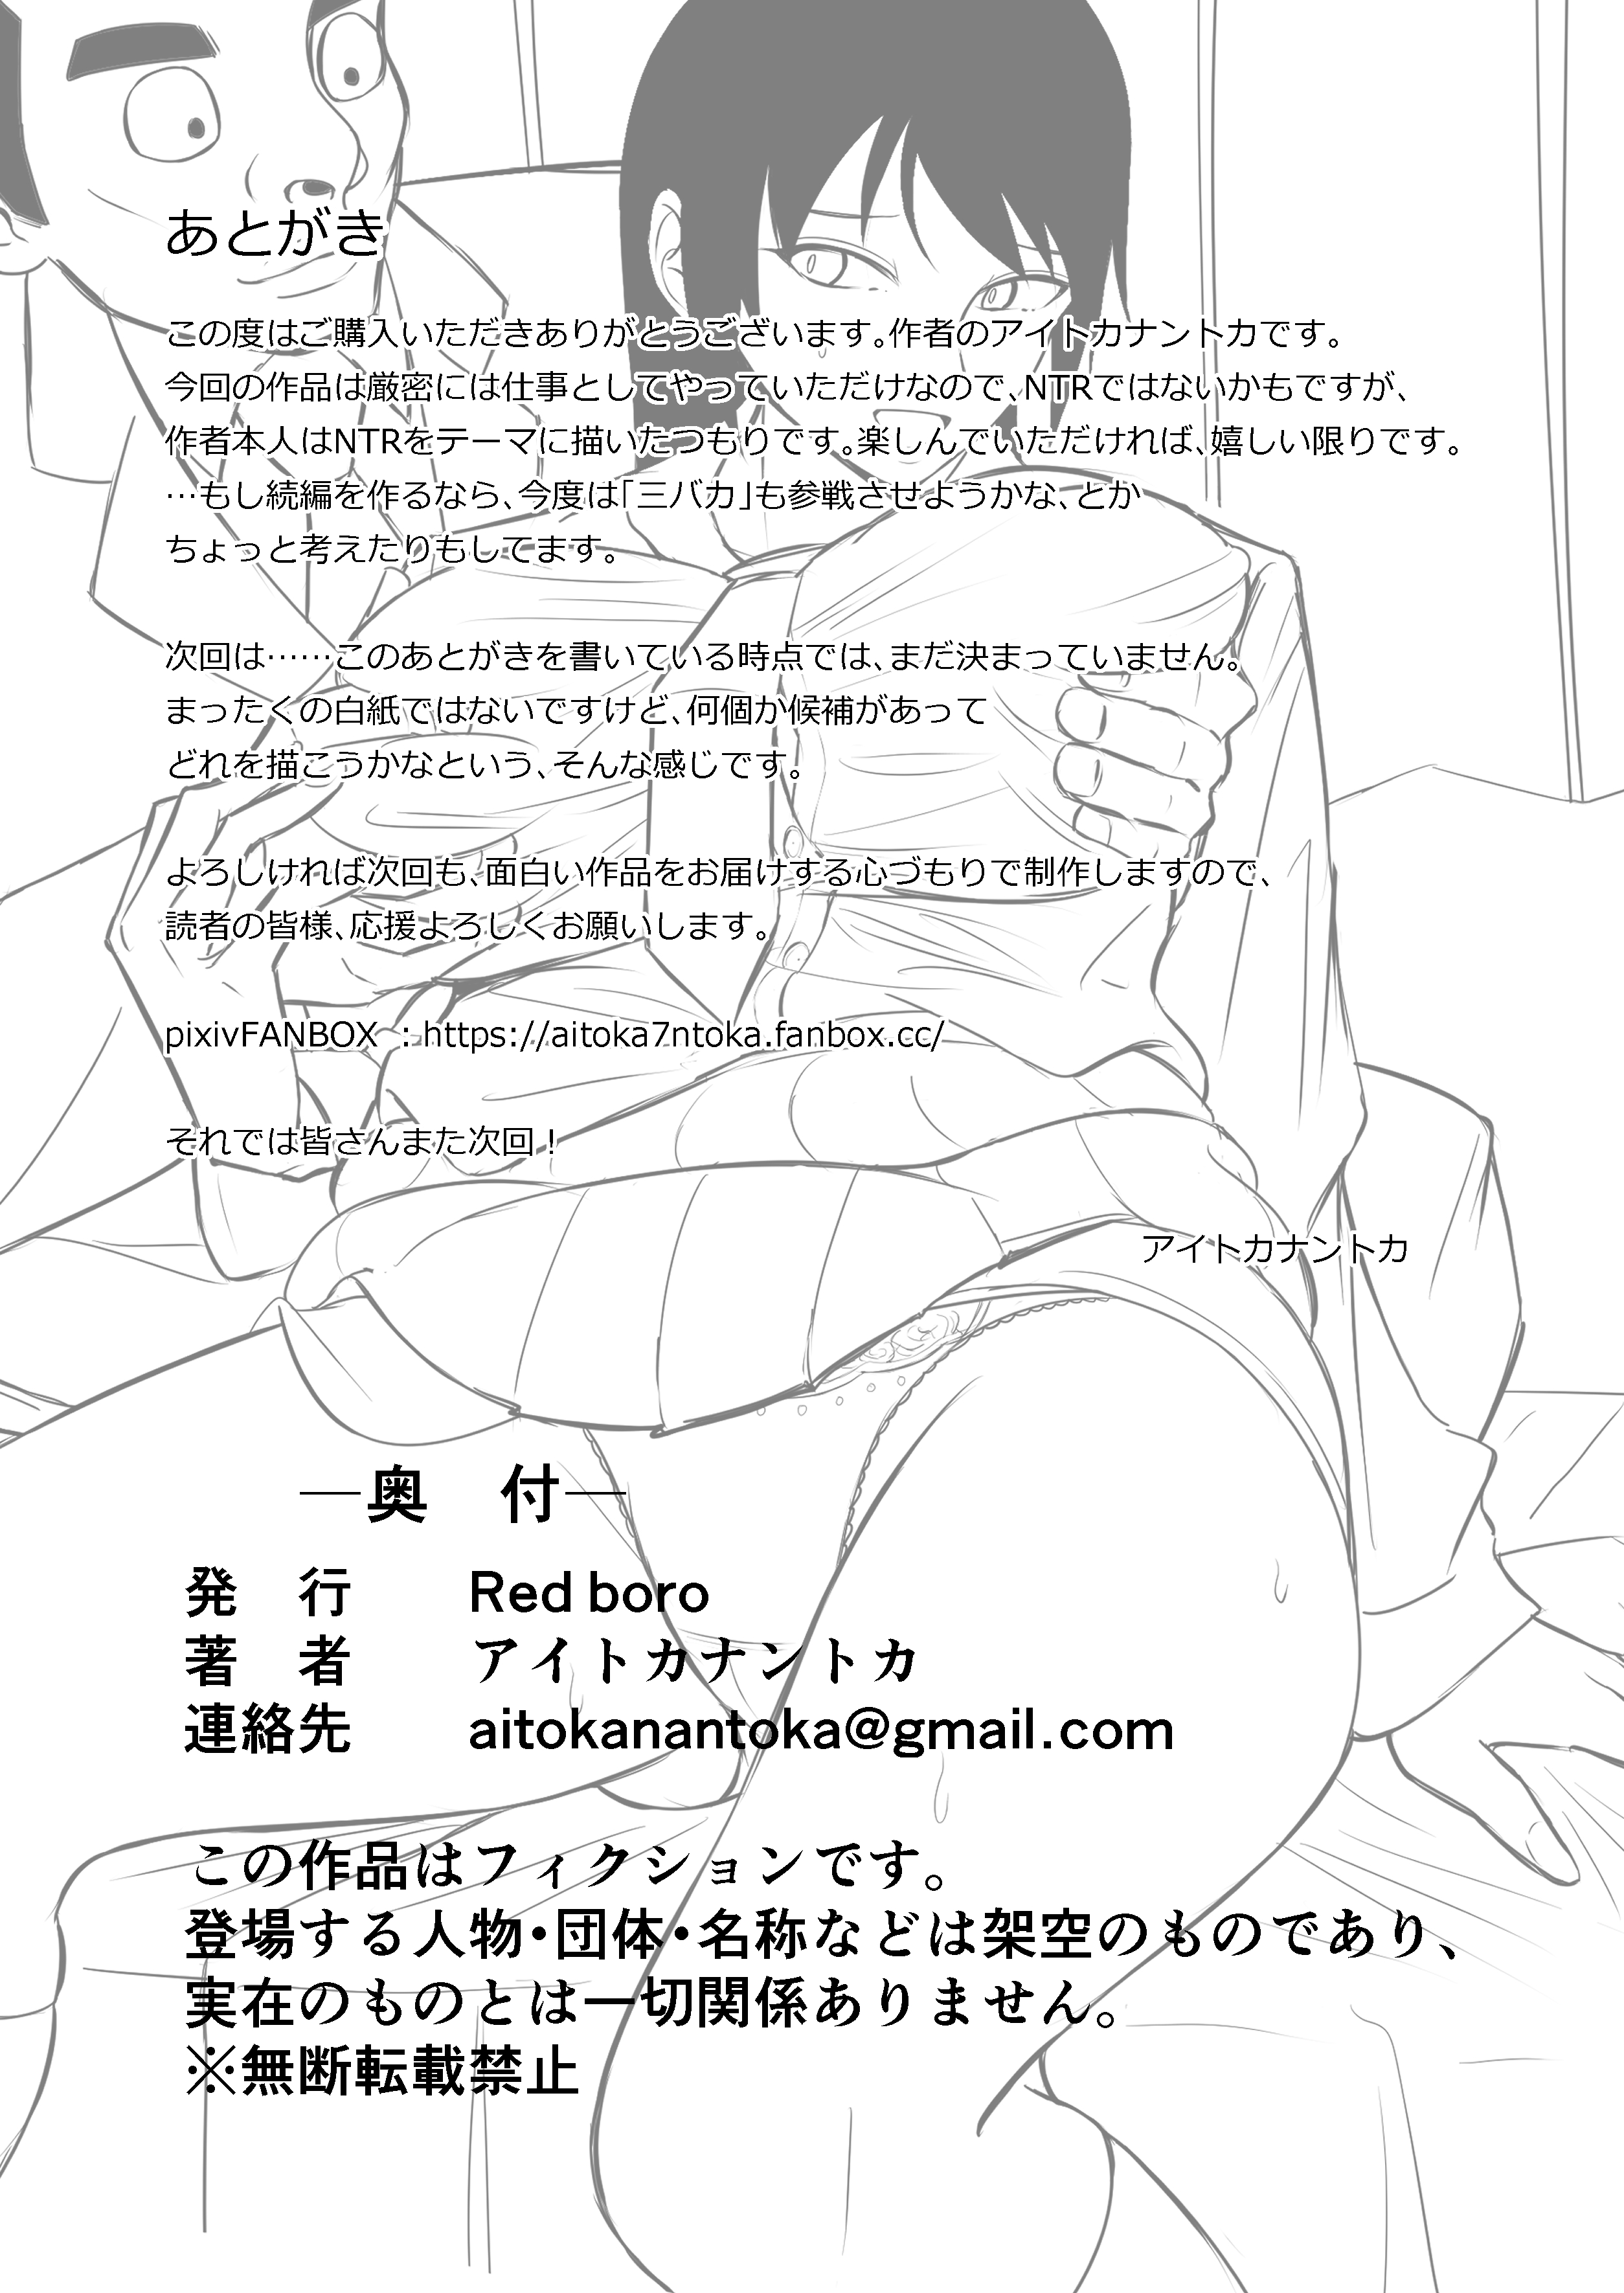 あとがき
この度はご購入いただきありがとうございます。作者のアイトカナントカです。
今回の作品は厳密には仕事としてやっていただけなので、NTRではないかもですが、
作者本人はNTRをテーマに描いたつもりです。楽しんでいただければ、嬉しい限りです。
…もし続編を作るなら、今度は「三バカ」も参戦させようかな、とか
ちょっと考えたりもしてます。
次回は……このあとがきを書いている時点では、まだ決まっていません。
まったくの白紙ではないですけど、何個か候補があって
どれを描こうかなという、そんな感じです。
よろしければ次回も、面白い作品をお届けする心づもりで制作しますので、
読者の皆様、応援よろしくお願いします。
pixivFANBOX ：https://aitoka7ntoka.fanbox.cc/
それでは皆さんまた次回！
アイトカナントカ
―奥　付―
発　行　　Red boro
著　者　　アイトカナントカ
連絡先　　aitokanantoka@gmail.com
この作品はフィクションです。
登場する人物・団体・名称などは架空のものであり、
実在のものとは一切関係ありません。
※無断転載禁止